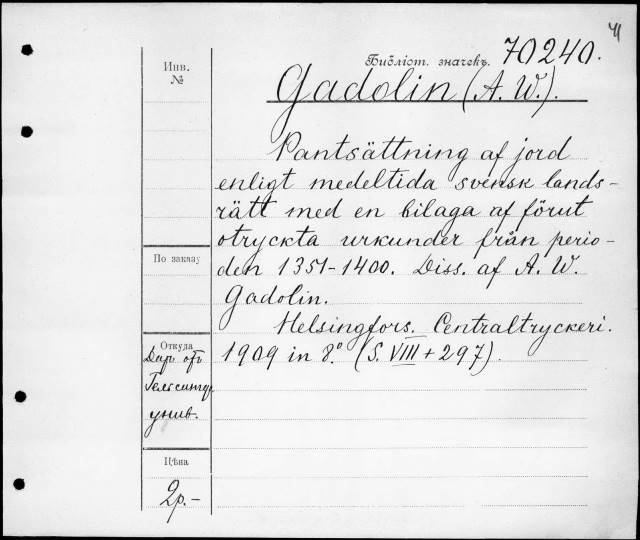 41
Библіот. значекъ. 70240.
Инв. №
Gadolin (A. W.).
Pantsättning af jord
enligt medeltida svensk lands-
rätt med en bilaga af förut
otryckta urkunder från perio-
den 1351-1400. Diss. af A. W.
Gadolin.
Helsingfors. Centraltryckeri.
1909 in 8.° (S. VIII + 297).
По заказу
Откуда
Даръ отъ
Гельсингф.
унив.
Цѣна
2р.-